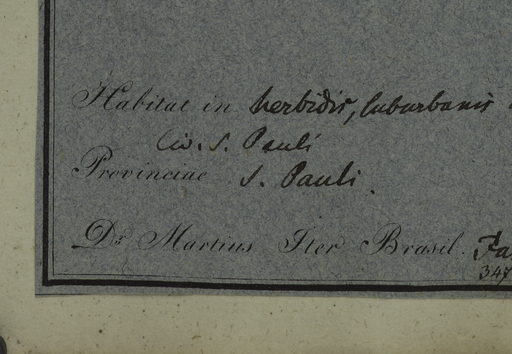 Habitat in herbidis, suburbanis
Civ. S. Pauli
Provinciae S. Pauli.
Dr. Martius Iter Brasil.
347